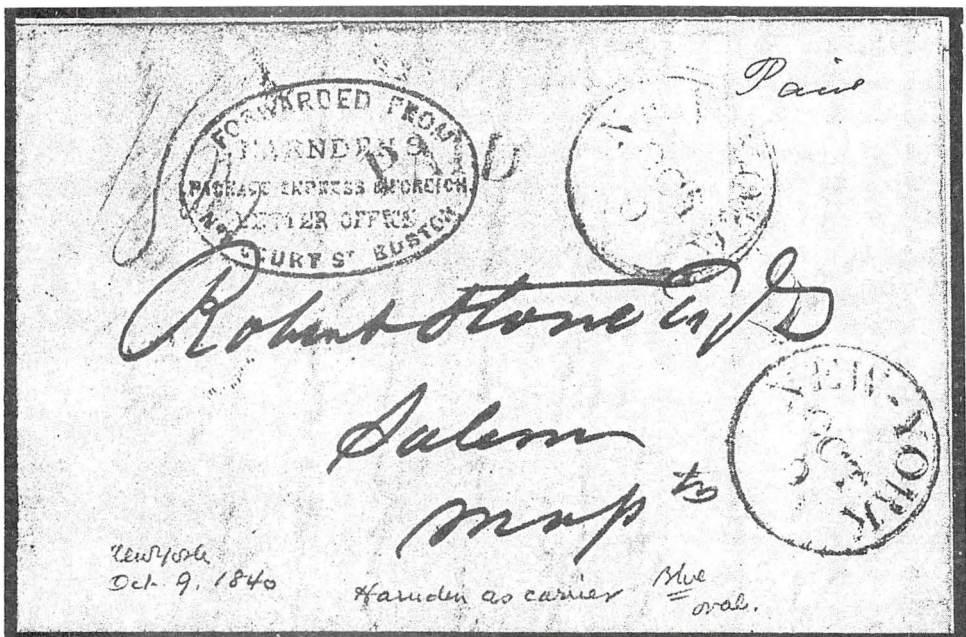 Paid
FORWARDED FROM
HARNDEN'S
PAID
PACKAGE EXPRESS & FOREIGN
LETTER OFFICE
COURT ST BOSTON
NEW YORK
OCT
Robert Stone Esqr
Salem
Mass
NEW-YORK
OCT
New York
Oct 9, 1840
Harnden as carrier
Blue
oval.